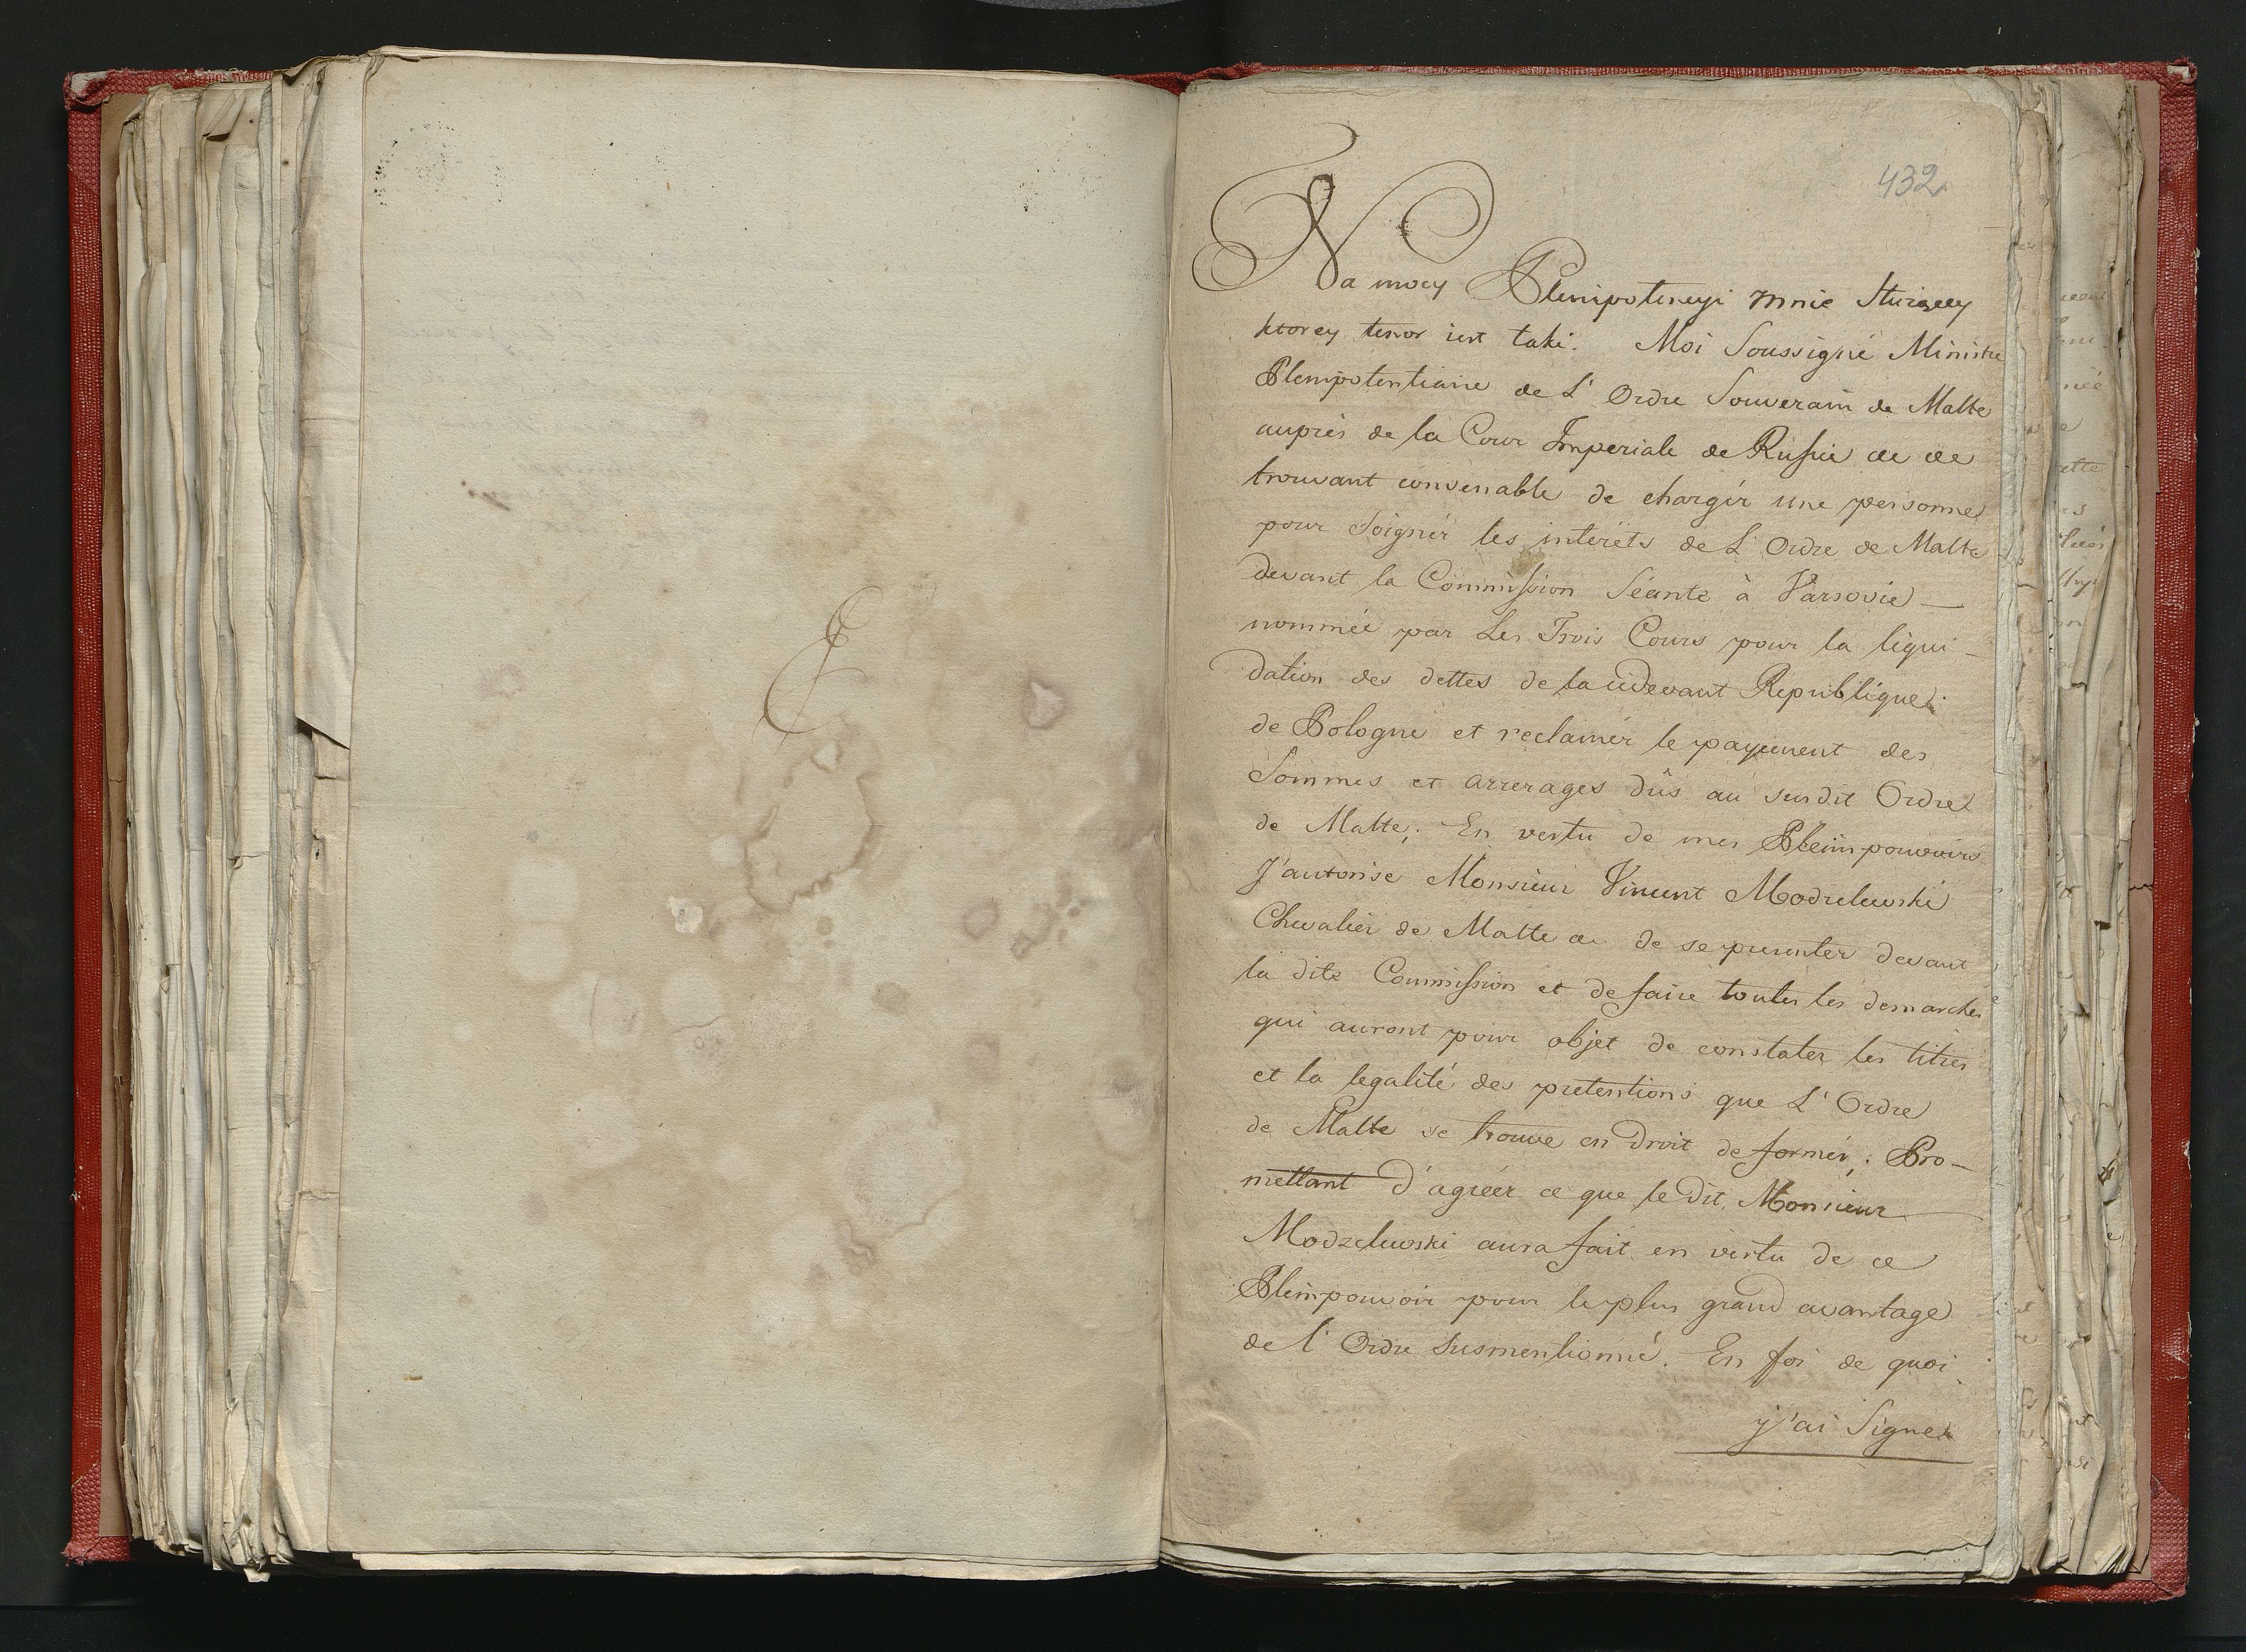 432
Na mocy Plenipotencyi mnie służącey
ktorey tenor iest taki. Moi Soussigné Ministre
Plenipotentiaire de L' Ordre Souverain de Malte
auprès de la Cour Imperiale de Russie &c &c
trouvant convenable de chargér une personne
pour Soignér les interêts de L' Ordre de Malte
devant la Commission Séante à Varsovie —
nommée par Les Trois Cours pour la liqui-
dation des dettes de la cidevant Republique
de Pologne et reclamér le payement des
Sommes et arrerages dûs au susdit Ordre
de Malte; En vertu de mes Pleinpouvoirs
J'autorise Monsieur Vincent Modzelewski
Chevalier de Malte &c de se presenter devant
la dite Commission et de faire toutes les demarches
qui auront pour objet de constater les titres
et la legalité des pretentions que L' Ordre
de Malte se trouve en Droit de formér; Pro-
mettant d'agréér ce que le Dit Monsieur
Modzelewski aura fait en vertu de ce
Pleinpouvoir pour le plus grand avantage
de l' Ordre Susmentionné. En foi de quoi
j'ai Signé